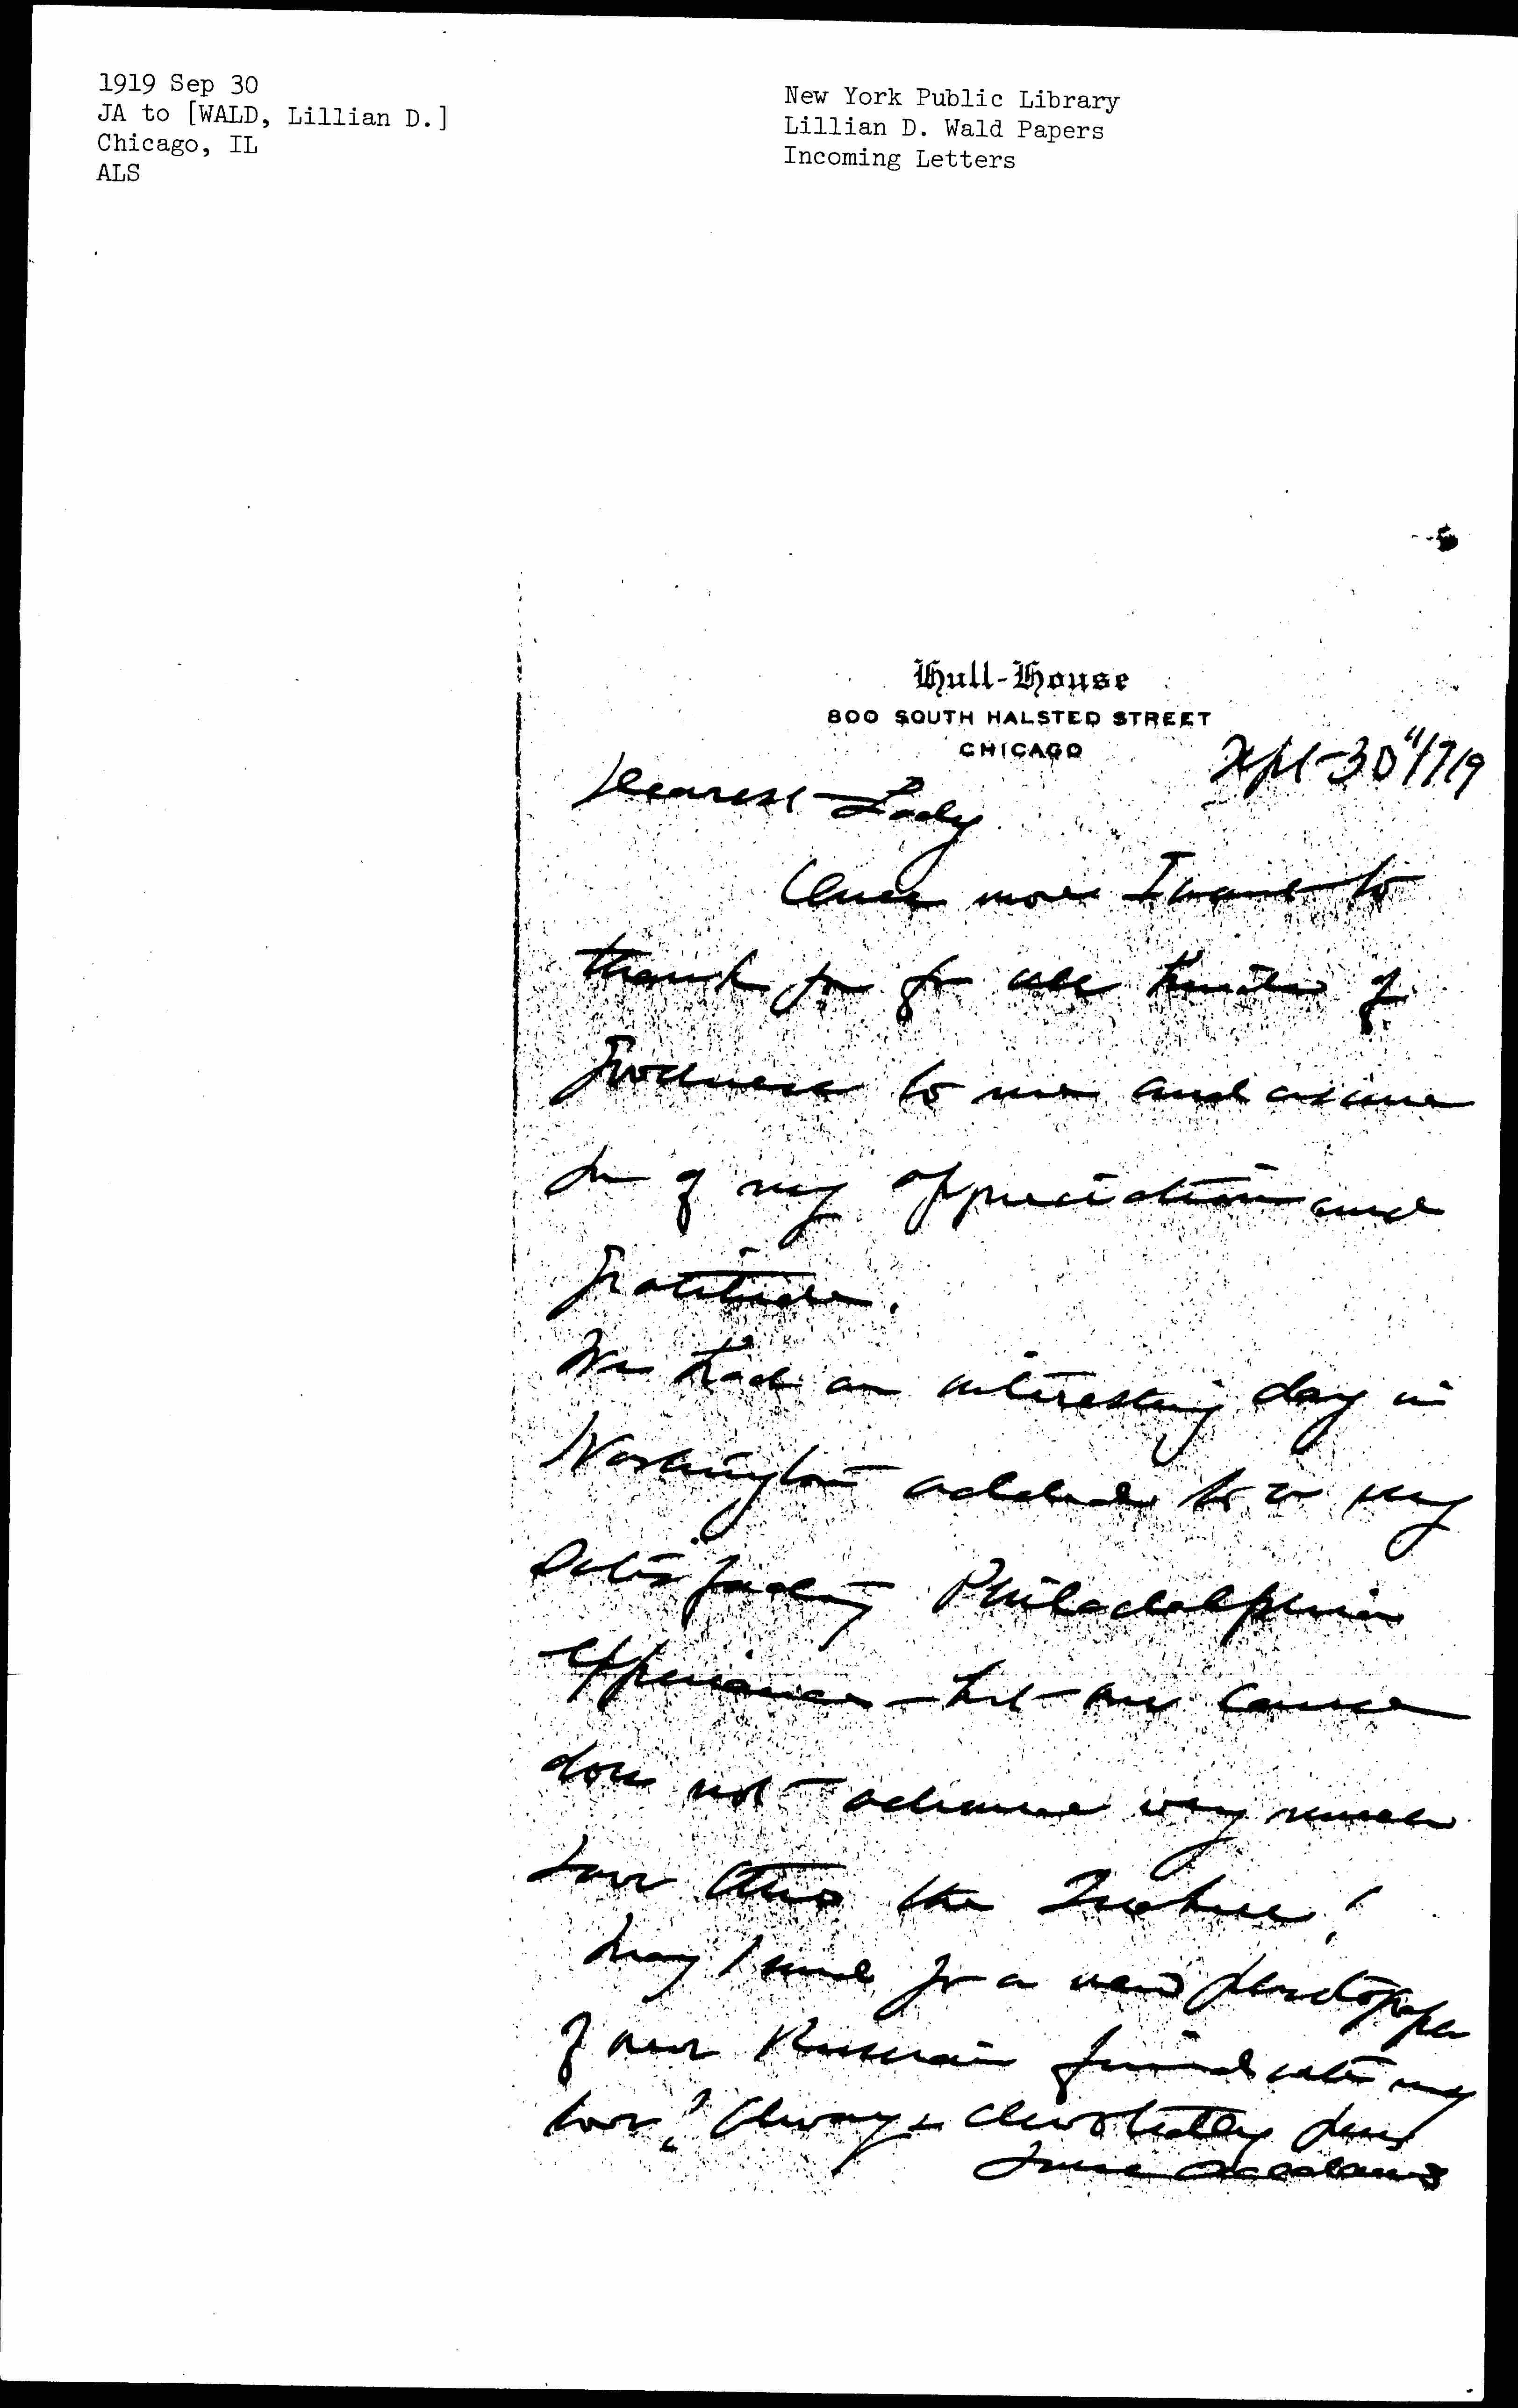 1919 Sep 30
JA to [WALD, Lillian D.]
Chicago, IL
ALS
New York Public Library
Lillian D. Wald Papers
Incoming Letters
Hull-House
800 SOUTH HALSTED STREET
CHICAGO
Sept 30" 1919
Dearest Lady
Once more I want to
thank you for all kinds of
goodness to me and assure
you of my appreciation and
gratitude.
We had an interesting day in
Washington added to a very
satisfactory Philadelphia
experience - but our cause
does not advance very much
save thro the
May I send you a new photograph
of our Russian friend with my
love? Always devotedly yours
Jane Addams